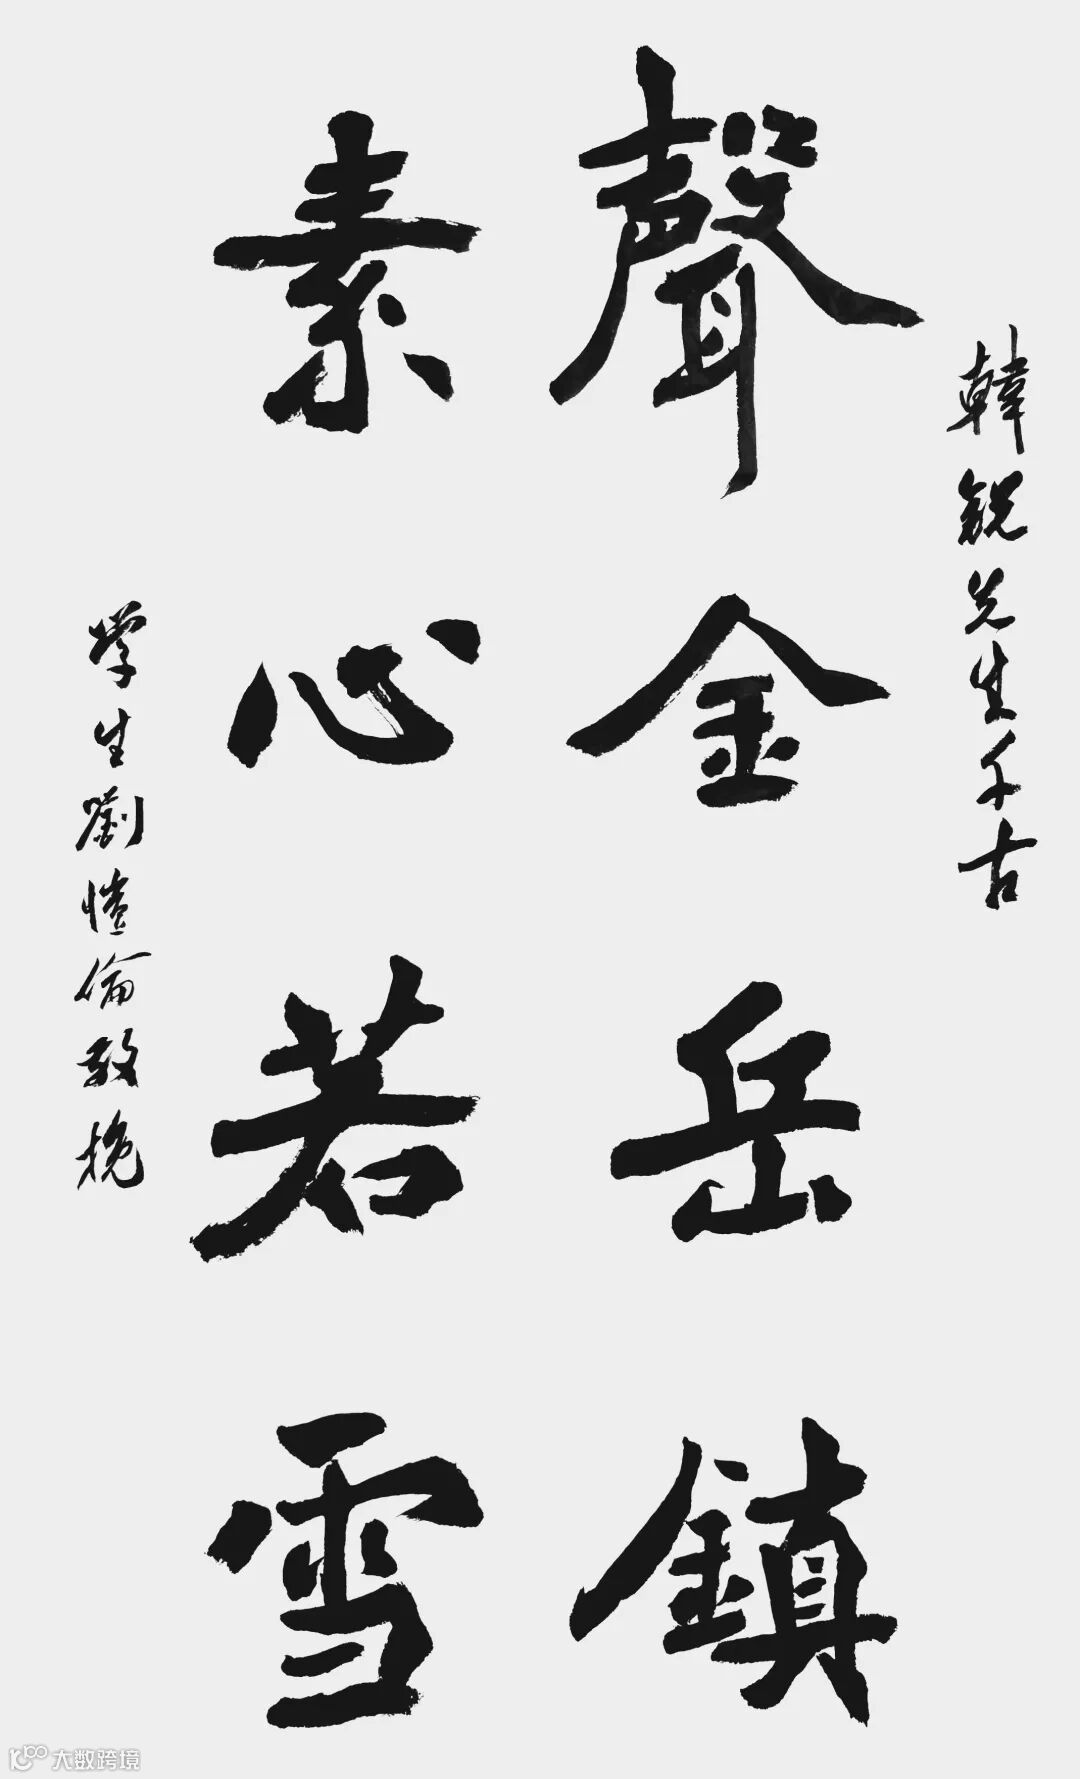 韓銳先生千古
聲金岳鎮
素心若雪
学生劉愷倫敬挽
大数跨境